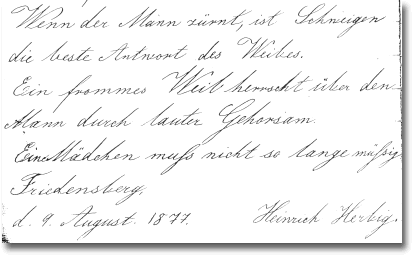 Wenn der Mann zürnt, ist Schweigen
die beste Antwort des Weibes.
Ein frommes Weib herrscht über den
Mann durch lauter Gehorsam.
Ein Mädchen muß nicht so lange müßig
Friedensberg,
d. 9. August. 1877. Heinrich Herbig.